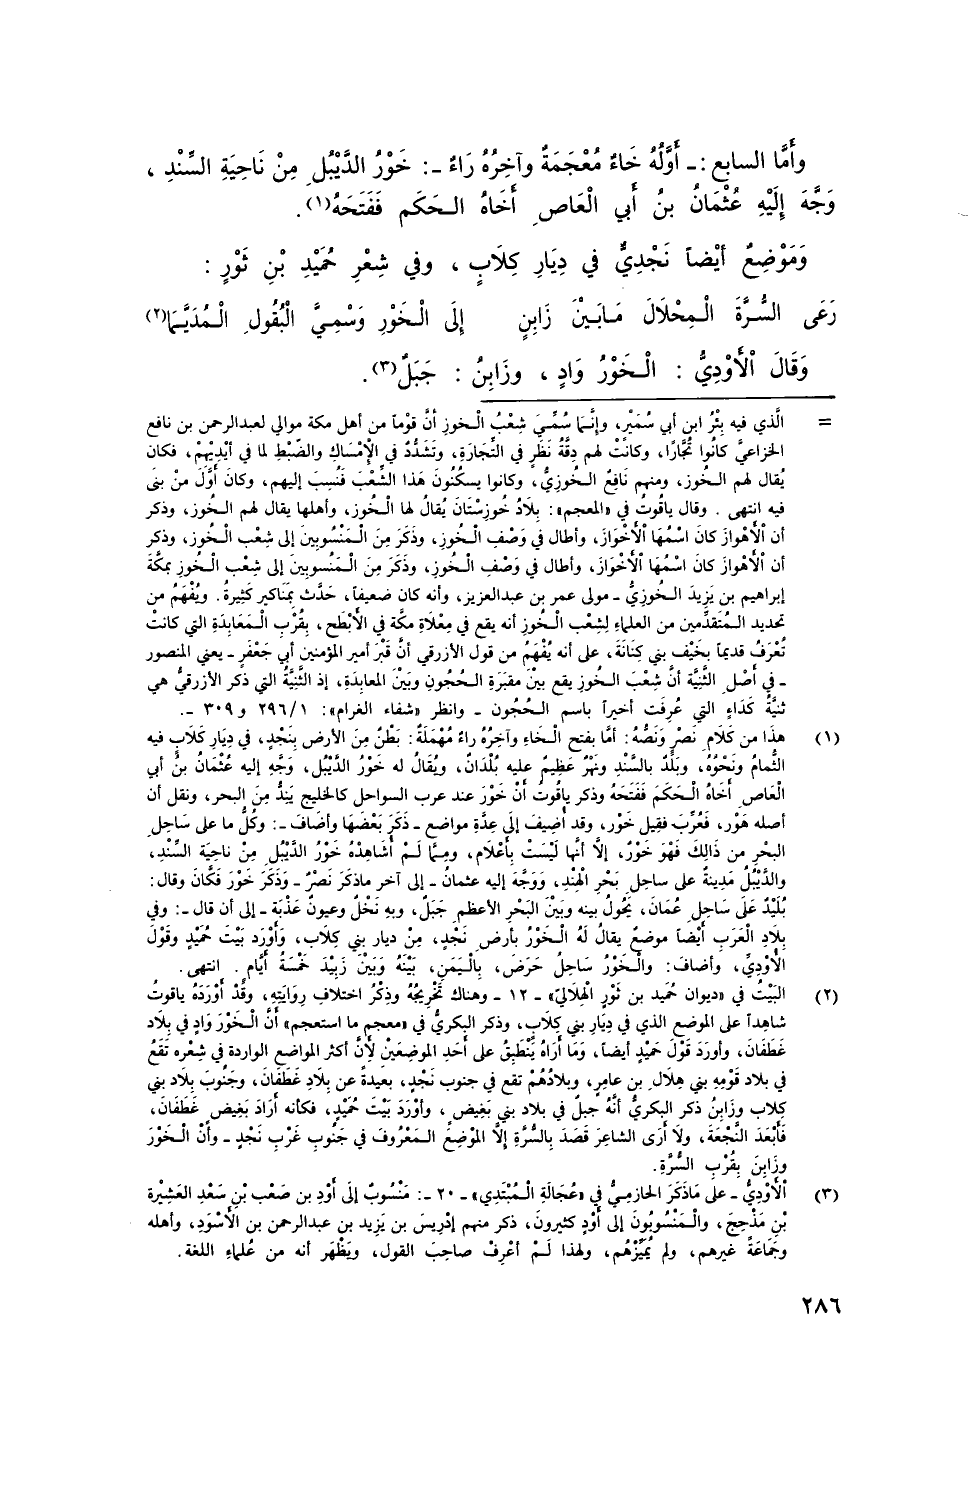 وأَمَّا السابع :ـ أَوَّلُهُ خَاءٌ مُعْجَمَةٌ وآخِرُهُ رَاءٌ ـ: خَوْرُ الدَّيْبُلِ مِنْ نَاحِيَةِ السِّنْدِ ،
وَجَّهَ إِلَيْهِ عُثْمَانُ بنُ أَبي الْعَاصِ أَخَاهُ الـحَكَم فَفَتَحَهُ(١).
وَمَوْضِعٌ أَيْضاً نَجْدِيٌّ في دِيَارِ كِلَابٍ ، وفي شِعْرِ حُمَيْدِ بْنِ ثَوْرٍ :
رَعَى السُّرَّةَ الْـمِحْلَالَ مَـابَـيْنَ زَابِنٍ إِلَى الْـخَوْرِ وَسْمِيَّ الْبُقُولِ الْـمُدَيَّمَا(٢)
وَقَالَ الْأَوْدِيُّ : الْـخَوْرُ وَادٍ ، وزَابِنُ : جَبَلٌ(٣).
= الَّذي فيه بِئْرُ ابن أبي سُمَيْر، وإِنَّـمَا سُمِّـيَ شِعْبُ الْـخوزِ أَنَّ قَوْماً من أهل مكة موالي لعبدالرحمن بن نافع
الخزاعيَّ كانُوا تُجَّارًا، وكانَتْ لهم دِقَّةُ نَظَرٍ في التِّجَارَةِ، وتَشَدُّدٌ في الإِمْسَاكِ والضَّبْطِ لما في أَيْدِيْهِمْ، فكان
يُقال لهم الـخُوز، ومنهم نَافِعٌ الـخُوزِيُّ، وكانوا يسكُنُونَ هَذَا الشِّعْبَ فَنُسِبَ إليهم، وكانَ أَوَّلَ مَنْ بنى
فيه انتهى . وقال ياقُوتُ في «المعجم»: بِلَادُ خُوزِسْتَانَ يُقالُ لها الْـخُوز، وأهلها يقال لهم الـخُوز، وذكر
أن الْأَهْوازَ كانَ اسْمُهَا الْأَخْوَازَ، وأطال في وَصْف الْـخُوزِ، وذَكَرَ مِنَ الْـمَنْسُوبِينَ إلى شِعْب الْـخُوز، وذكر
أن الْأَهْوازَ كانَ اسْمُهَا الْأَخْوَازَ، وأطال في وَصْفِ الْـخُوزِ، وذَكَرَ مِنَ الْـمَنْسوبِينَ إلى شِعْب الْـخُوزِ بمكَّةَ
إبراهيم بن يَزِيدَ الـخُوزِيُّ ـ مولى عمر بن عبدالعزيز، وأنه كان ضعيفاً، حَدَّث بمَنَاكيرَ كثيرةُ. ويُفْهَمُ من
تحديد الـمُتقدِّمين من العلماءِ لِشِعْبِ الْـخُوزِ أنه يقع في مِعْلَاةِ مكَّة في الأَبْطَحِ، بِقُرْبِ الْـمَعَابِدَةِ التي كانتْ
تُعْرَفُ قديماً بِخَيْفِ بني كِنَانَةَ، على أنه يُفْهَمُ من قول الأزرقي أنَّ قَبْرَ أمير المؤمنين أبي جَعْفَر ـ يعني المنصور
ـ في أَصْلِ الثَّنِيَّة أنَّ شِعْبَ الـخُوزِ يقع بَيْنَ مقبَرةِ الـحُجُونِ وبَيْنَ المعابِدَةِ، إذ الثَّنِيَّةُ التي ذكر الأزرقيُّ هي
ثنيَّةُ كَدَاءٍ التي عُرِفَت أخيراً باسم الـحُجُون ـ وانظر «شفاء الغرام»: ٢٩٦/١ و ٣٠٩ ـ.
(١) هذَا من كَلَامِ نَصْرٍ ونَصُّهُ: أمَّا بفتح الْـخَاءِ وآخِرُهُ راءٌ مُهْمَلَةٌ: بَطْنٌ مِنَ الأرض بِنَجْدٍ، في دِيَارِ كِلَابٍ فيه
الثُّمامُ ونَحْوُهُ، وبَلَدٌ بالسِّنْدِ ونَهْرٌ عَظِيمٌ عليه بُلْدَانٌ، ويُقَالُ له خَوْرُ الدَّيْبُلِ، وَجَّهَ إليه عُثْمَانُ بنُ أبي
الْعَاصِ أَخَاهُ الْـحَكَمَ فَفَتَحَهُ وذكر ياقُوتُ أَنْ خَوْرَ عند عرب السواحل كالخليج يَنِدُّ مِنَ البحر، ونقل أن
أصله هَوْر، فَعُرِّبَ فقيل خَوْر، وقد أُضيفَ إلَى عِدَّةِ مواضع ـ ذَكَرَ بَعْضَهَا وأضافَ ـ: وكُلُّ ما على سَاحِلِ
البحْرِ من ذَالِكَ فَهْوَ خَوْرٌ، إلاَّ أنَّها لَيْسَتْ بِأَعْلَامٍ، ومِمَّا لَمْ أُشَاهِدْهُ خَوْرُ الدَّيْبُلِ مِنْ ناحِيَة السِّنْدِ،
والدَّيْبُلُ مَدينةٌ على ساحِلِ بَحْرِ الْهِنْدِ، وَوَجَّهَ إليه عثمانُ ـ إلى آخر ماذكَرَ نَصْرٌ ـ وَذَكَرَ خَوْرَ فَكَّانَ وقال:
بُلَيْدٌ عَلَى سَاحِلِ عُمَانَ، يَحُولُ بينه وبَيْنَ البَحْرِ الأعظمِ جَبَلٌ، وبهِ نَخْلٌ وعيونٌ عَذْبَة ـ إلى أن قال ـ: وفي
بِلَادِ الْعَرَبِ أَيْضاً موضعٌ يقالُ لَهُ الْـخَوْرُ بأرض نَجْدٍ، مِنْ ديار بني كِلَاب، وَأَوْرَد بَيْتَ حُمَيْدٍ وقَوْلَ
الأَوْدِيِّ، وأضافَ: والْـخَوْرُ سَاحِلُ حَرَضَ، بِالْـيَمَنِ، بَيْنَهُ وَبَيْنَ زَبِيْدَ خَمْسَةُ أيَّام . انتهى.
(٢) البَيْتُ في «ديوان حُميد بن ثَوْرٍ الْهِلَالِيّ» ـ ١٢ ـ وهناك تَخْرِيجُهُ وذِكْرُ اختلافِ رِوَايَتِهِ، وقَدْ أَوْرَدَهُ ياقوتُ
شاهِداً على الموضع الذي في دِيَارِ بني كِلَابٍ، وذكر البكريُّ في «معجم ما استعجم» أنَّ الْـخَوْرَ وَادٍ في بِلَاد
غَطَفَانَ، وأورَدَ قَوْلَ حَمَيْدٍ أيضاً، وَمَا أَرَاهُ يَنْطَبِقُ على أَحَدِ الموضِعَيْنِ لِأَنَّ أكثر المواضع الواردة في شِعْره تَقَعُ
في بلاد قَوْمِهِ بني هِلَالِ بن عامِرٍ، وبلادُهُمْ تقع في جنوب نَجْدٍ، بعيدةً عن بِلَادِ غَطَفَانَ، وجَنُوبَ بِلَاد بني
كلاب وزَابِنٌ ذكر البكريُّ أَنَّهُ جبلٌ في بلاد بني بَغِيضٍ ، وأَوْرَدَ بَيْتَ حُمَيْدٍ، فكأنه أَرَادَ بَغِيضَ غَطَفَانَ،
فَأَبْعَدَ النَّجْعَةَ، ولاَ أَرَى الشاعِرَ قَصَدَ بِالسُّرَّةِ إلَّا الْمَوْضِعَ الـمَعْرُوفَ في جَنُوبِ غَرْبِ نَجْدٍ ـ وأَنَّ الْـخَوْرَ
وزَابِنَ بِقُرْبِ السُّرَّةِ.
(٣) الْأَوْدِيُّ ـ على مَاذَكَرَ الحازميُّ في «عُجَالَةِ الْـمُبْتَدِي» ـ ٢٠ ـ: مَنْسُوبٌ إلَى أَوْدِ بن صَعْب بْنِ سَعْدِ العَشِيْرة
بْنِ مَذْحِجَ، والْـمَنْسُوبُونَ إلى أَوْدٍ كثيرونَ، ذكر منهم إدْرِيسَ بن يَزِيد بن عبدالرحمن بن الأَسْوَدِ، وأهله
وجَمَاعَةً غيرهم، ولم يُمَيِّزْهُم، ولهذا لَـمْ أَعْرِفْ صاحِبَ القول، ويَظْهَر أنه من عُلماءِ اللغة.
٢٨٦